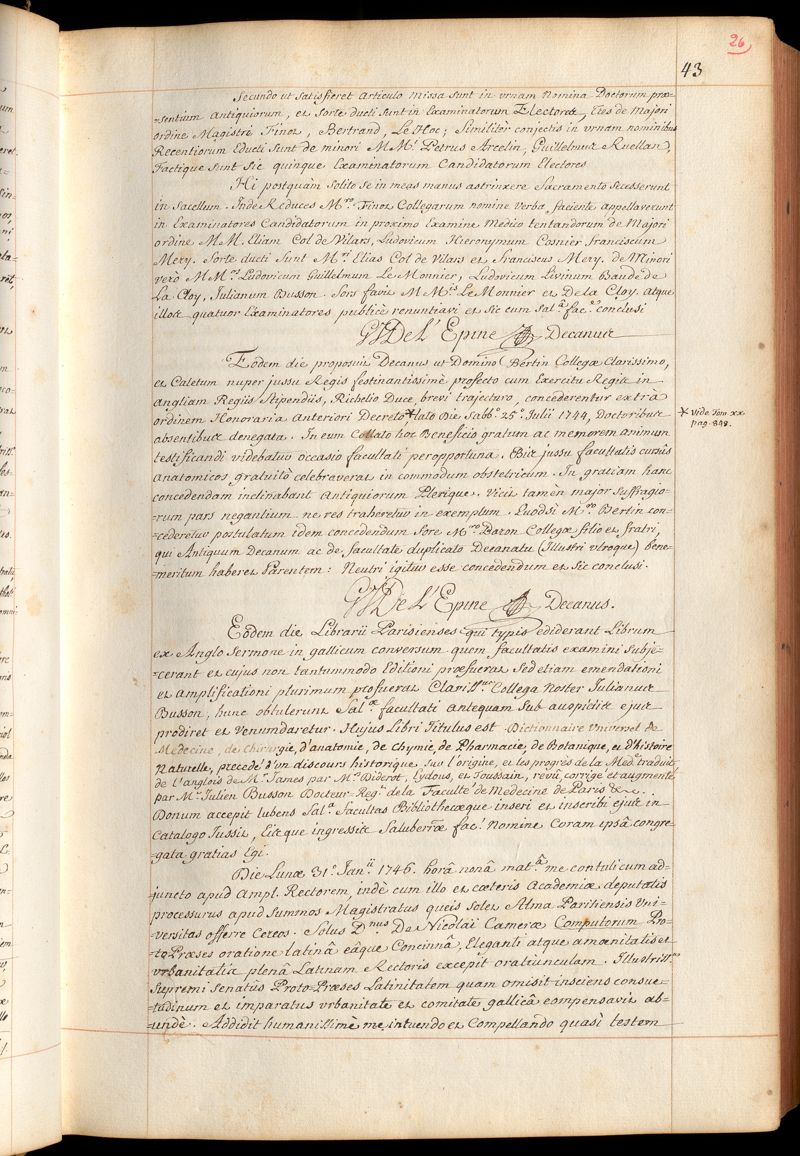 26
43
Secundo ut satisfieret articulo missa sunt in urnam Nomina Doctorum præ-
-sentium Antiquiorum, et sorte ducti sunt in Examinatorum Electores, tres de Majori
ordine Magistri Finot, Bertrand, Le Hoc; Similiter conjectis in urnam nominibus
Recentiorum Educti sunt de minori M Mi Petrus Arcelin, Guillelmus Ruellan,
Factique sunt sic quinque Examinatorum Candidatorum Electores
Hi postquam solito se in meas manus astrinxere Sacramento Secesserunt
in Sacellum. Inde Reduces Mro. Finot Collegarum nomine verba faciente appellaverunt
in Examinatores Candidatorum in proximo Examine Medico tentandorum de Majori
ordine M M. Eliam Col de Vilars, Ludovicum Hieronymum Cosnier Franciscum
Mery. Sorte ducti sunt Mri Elias Col de Vilars et Franciscus Mery. de Minori
verò M Mros Ludovicum Guillelmum Le Monnier, Ludovicum Livinum Baude de
La Cloy, Julianum Busson. Sors favit M Mis Le Monnier et De la Cloy. atque
illos quatuor Examinatores publicè renuntiavi et sic cum Sal.â fac.e conclusi
GJ De L'Epine Decanus
Eodem die proposuit Decanus ut Domino Bertin Collegæ Clarissimo,
et Caletum nuper jussu Regis festinantissimè profecto cum Exercitu Regis in
Angliam Regiis Stipendiis, Richelio Duce, brevi trajecturo, concederentur extrà
ordinem Honoraria Anteriori Decreto * lato Die Sabb.o 25.a Julii 1744, Doctoribus
absentibus denegata. In eum Collato hoc Beneficio gratum ac memorem animum
testificandi videbatur occasio facultati peropportuna. Bis jussu facultatis cursus
Anatomicos gratuitò celebraverat in commodum obstetricum. In gratiam hanc
concedendam inclinabant Antiquiorum Plerique. Vicit tamèn major Suffragio-
-rum pars negantium ne res traheretur in exemplum. Quodsi Mro Bertin con-
-cederetur postulatum idem concedendum fore Mro Baron Collegæ filio et fratri,
qui Antiquum Decanum ac de facultate duplicato Decanatu (Illustri utroque) bene-
-meritum haberet Parentem: Neutri igitur esse concedendum et sic conclusi.
* Vide Tom xx
pag. 848.
GJ De L'Epine Decanus.
Eodem die Librarii Parisienses qui typis ediderant Librum
ex Anglo Sermone in gallicum conversum quem facultatis examini subje-
-cerant et cujus non tantummodo Editioni præfuerat sed etiam emendationi
et amplificationi plurimum profuerat Clarissmus Collega Noster Julianus
Busson, hunc obtulerunt Sal.æ facultati antequam sub auspiciis ejus
prodiret et venumdaretur. Hujus Libri Titulus est Dictionnaire Universel de
Médecine, de Chirurgie, d'anatomie, de Chymie, de Pharmacie, de Botanique, et d'histoire
Naturelle, precedé d'un discours historique sur l'origine, et les progrès de la Mede. traduit
de l'anglois de Mr. James par Mrs Diderot, Eydous, et Toussain, revû, corrigé et augmenté
par Mr. Julien Busson Docteur-Regt. de la Faculté de Medecine de Paris &c. .
Donum accepit lubens Sal.a Facultas Bibliothecæque inseri et inscribi ejus in
Catalogo Jussit, Eisque ingressis Saluberræ fac.s Nomine Coram ipsâ congre-
-gata gratias Egi.
Die Lunæ 31.a Jan.ii 1746. horâ nonâ mat.â me contuli cum ad-
-juncto apud Ampl. Rectorem, indè cum illo et cæteris Academiæ deputatis
processurus apud summos Magistratus queis solet Alma Parisiensis Uni-
-versitas offerre Cereos. Solus Dnus De Nicolaï Cameræ Computorum Pro-
-to-Præses oratione latinâ eâque Concinnâ, Eleganti atque amœnitatis et
urbanitatis plenâ Latinam Rectoris excepit oratiunculam. Illustrissmus
Supremi Senatûs Proto-Præses Latinitatem quam omisit insciens consue-
-tudinum et imparatus urbanitate et comitate gallicâ compensavit ab-
-undè. Addidit humanissimè me intuendo et Compellando quasi testem